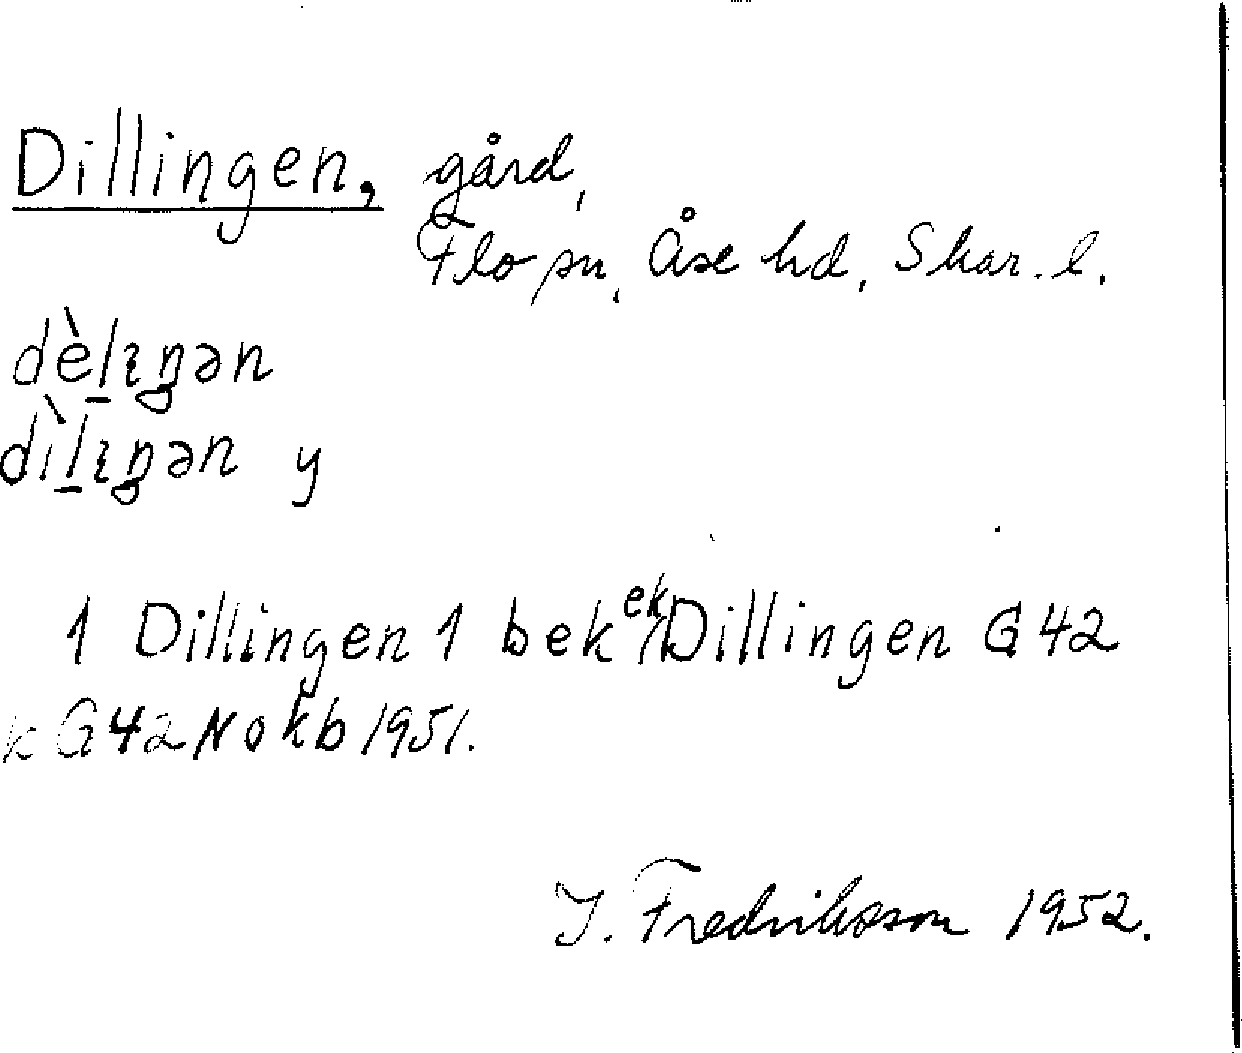 Dillingen, gård,
Flo sn, Åse hd, Skar. l.
dèlıŋən
dìlıŋən y
1 Dillingen 1 bek ek/Dillingen G 42
k G 42 No kb 1951.
I. Fredriksson 1952.